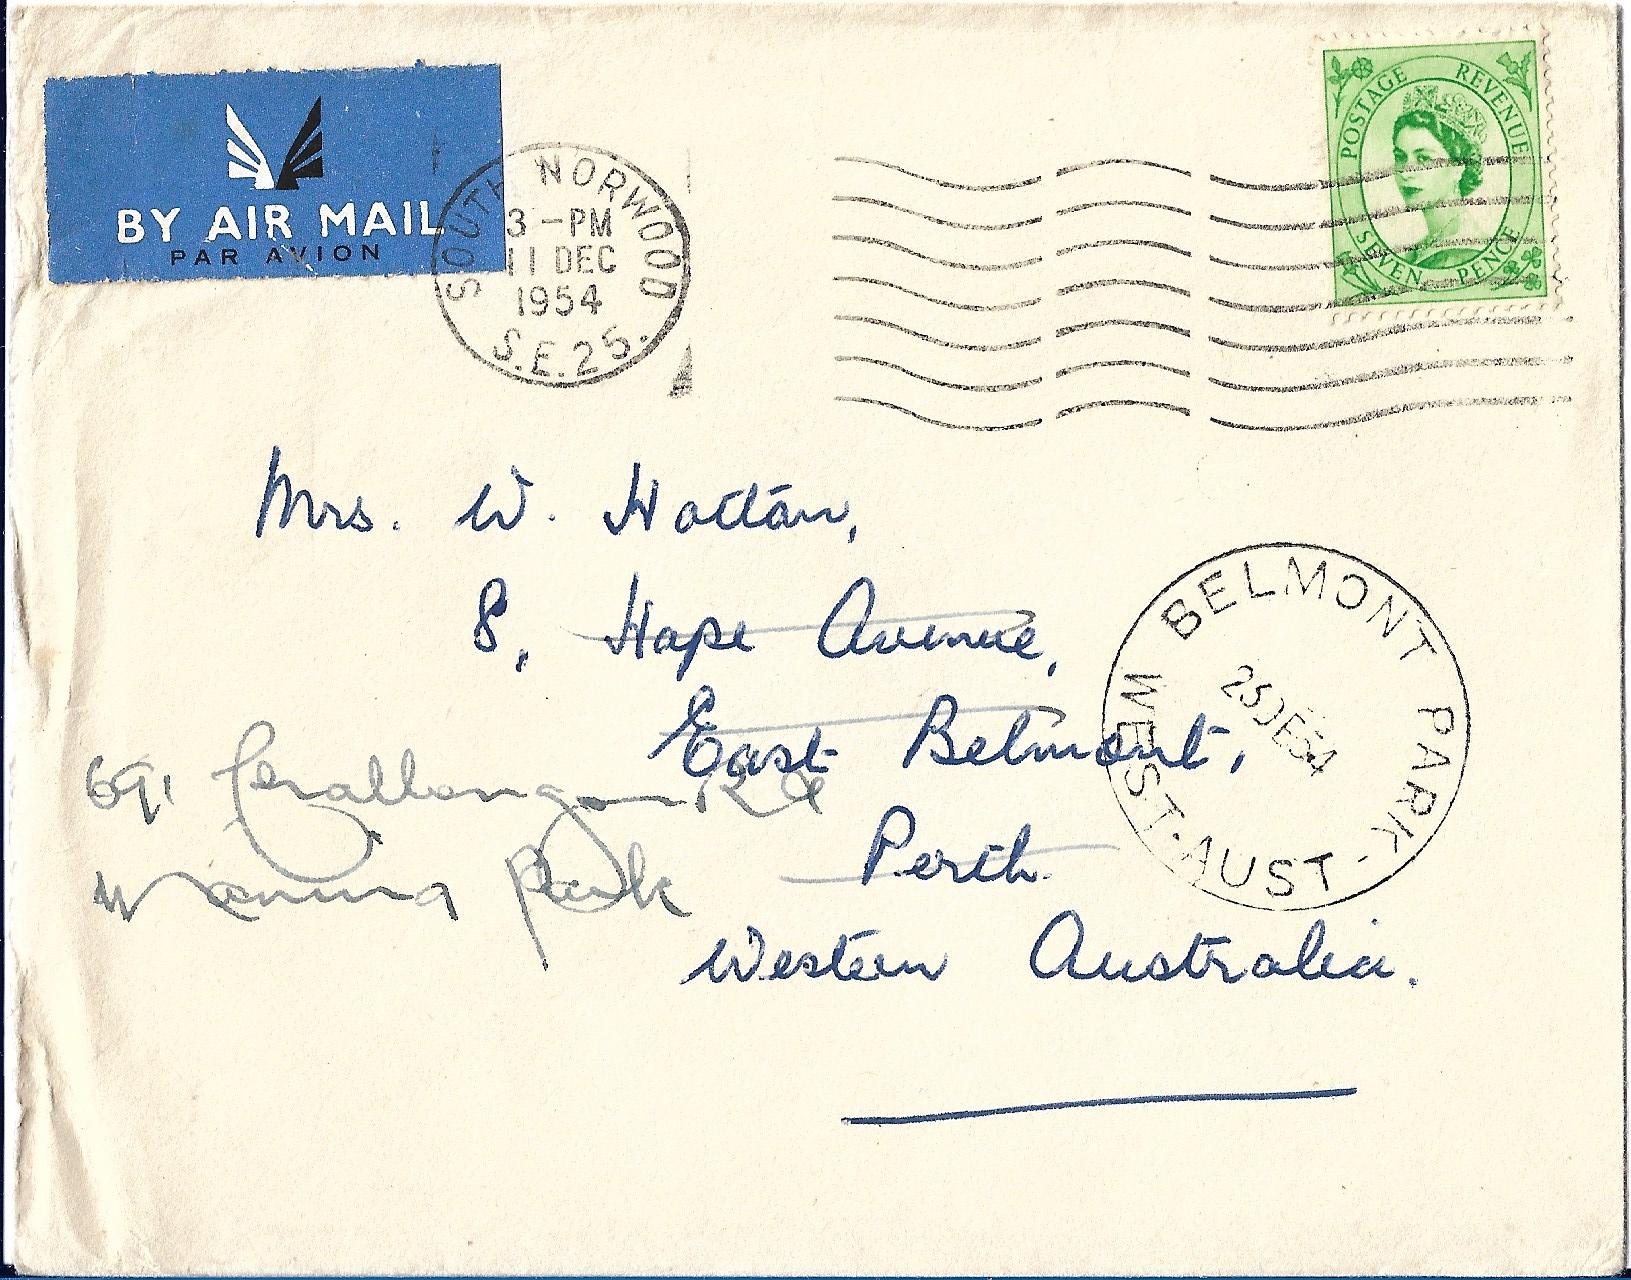 BY AIR MAIL
PAR AVION
SOUTH NORWOOD
3-PM
11 DEC
1954
S.E.25.
POSTAGE REVENUE
SEVEN PENCE
Mrs. W. Hottan,
8, Hope Avenue,
East Belmont,
Perth.
Western Australia.
69, Rd
Manning Park
BELMONT PARK
25 DE 54
WEST. AUST.